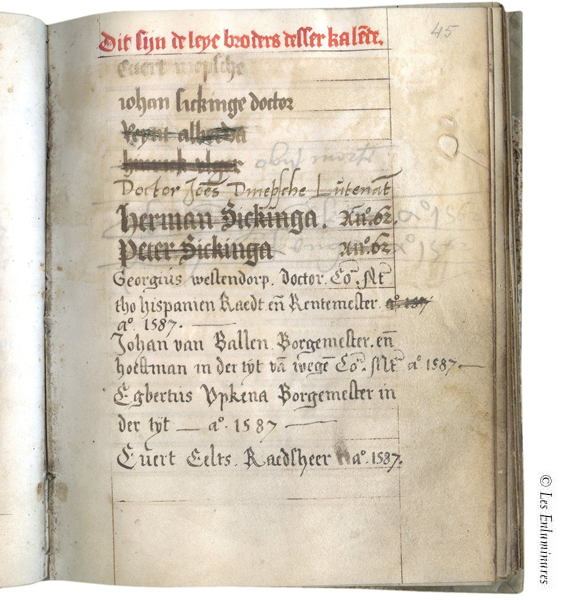 45
Dit sijn de leye broders desser kalēde.
Evert mepsche
iohan sickinge doctor
Reynt alberda
hinrick
Doctor Joēs Dmepsche Lutenāt
herman Sickinga. Añ°. 62.
Peter Sickinga Añ°. 62
Georgius westendorp. doctor. Co. Mt
tho hispanien Raedt eñ Rentemester. a° 157
a°. 1587.
Johan van Ballen. Borgemester. eñ
hoeftman in der tyt vā wegē Co. Mt a° 1587.
Egbertus Upkena Borgemester in
der tyt — a°. 1587 —
Evert Eelts. Raedsheer a°. 1587.
© Les Enluminures